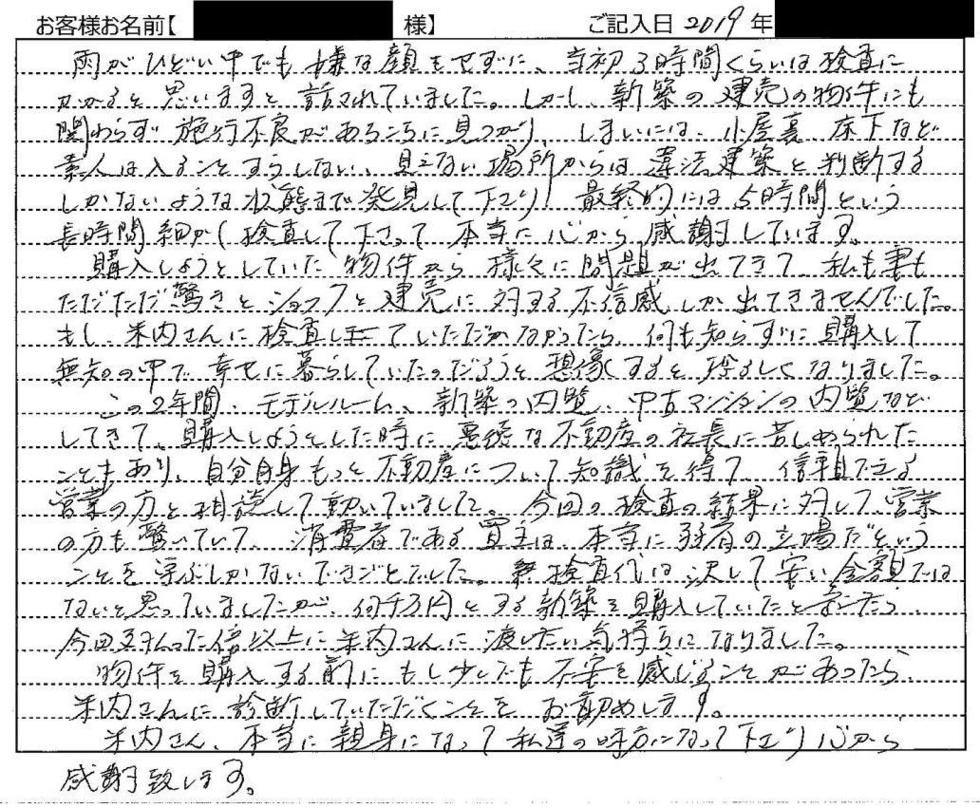 お客様お名前【 様】 ご記入日 2019年
雨がひどい中でも嫌な顔をせずに、当初3時間くらいは検査に
かかると思いますと話されていました。しかし、新築の建売の物件にも
関わらず施行不良があるころに見つかり、しまいには、小屋裏、床下など
素人は入ることすらしない、見えない場所からは違法建築と判断する
しかないような状態まで発見して下さり、最終的には5時間という
長時間細かく検査して下さって本当に心から感謝しています。
購入しようとしていた物件から様々に問題が出てきて私も妻も
ただただ驚きとショックと建売に対する不信感しか出てきませんでした。
もし、米内さんに検査していただかなかったら、何も知らずに購入して
無知の中で幸せに暮らしていたのだろうと想像すると恐ろしくなりました。
この2年間、モデルルーム、新築の内覧、中古マンションの内覧など
してきて、購入しようとした時に悪徳な不動産の社長に苦しめられた
こともあり、自分自身もっと不動産について知識を得て、信頼できる
営業の方と相談して動いていました。今回の検査の結果に対して、営業
の方も驚いていて、消費者である買主は、本当に弱者の立場だという
ことを学ぶしかないできごとでした。検査代は決して安い金額では
ないと思っていましたが、何千万円とする新築を購入していたと考えたら、
今回支払った倍以上に米内さんに渡したい気持ちになりました。
物件を購入する前にもし少しでも不安を感じることがあったら、
米内さんに診断していただくことをお勧めします。
米内さん、本当に親身になって私達の味方になって下さり心から
感謝致します。